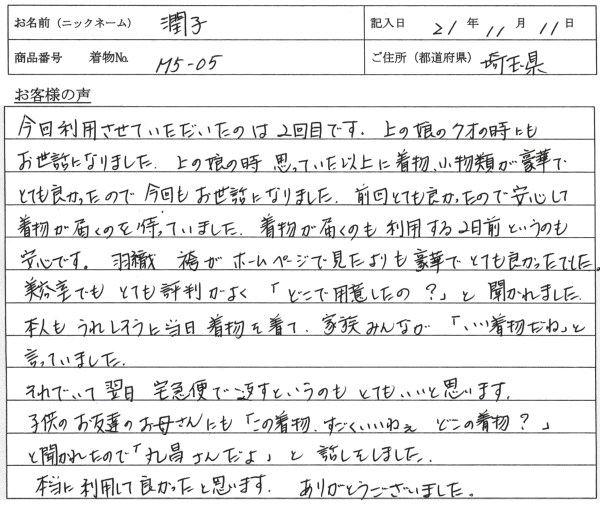 お名前（ニックネーム） 潤子 記入日 21年11月11日
商品番号 着物No. M5-05 ご住所（都道府県） 埼玉県
お客様の声
今回利用させていただいたのは2回目です。上の娘の7才の時にも
お世話になりました。上の娘の時 思っていた以上に着物、小物類が豪華で
とても良かったので今回もお世話になりました。前回とても良かったので安心して
着物が届くのを待っていました。着物が届くのも利用する2日前というのも
安心です。羽織 袴がホームページで見たよりも豪華でとても良かったでした。
美容室でもとても評判がよく「どこで用意したの？」と聞かれました。
本人もうれしそうに当日着物を着て、家族みんなが「いい着物だね」と
言っていました。
それでいて翌日 宅急便で返すというのもとてもいいと思います。
子供のお友達のお母さんにも「この着物、すごくいいねぇ どこの着物？」
と聞かれたので「丸昌さんだよ」と話しをしました。
本当に利用して良かったと思います。ありがとうございました。